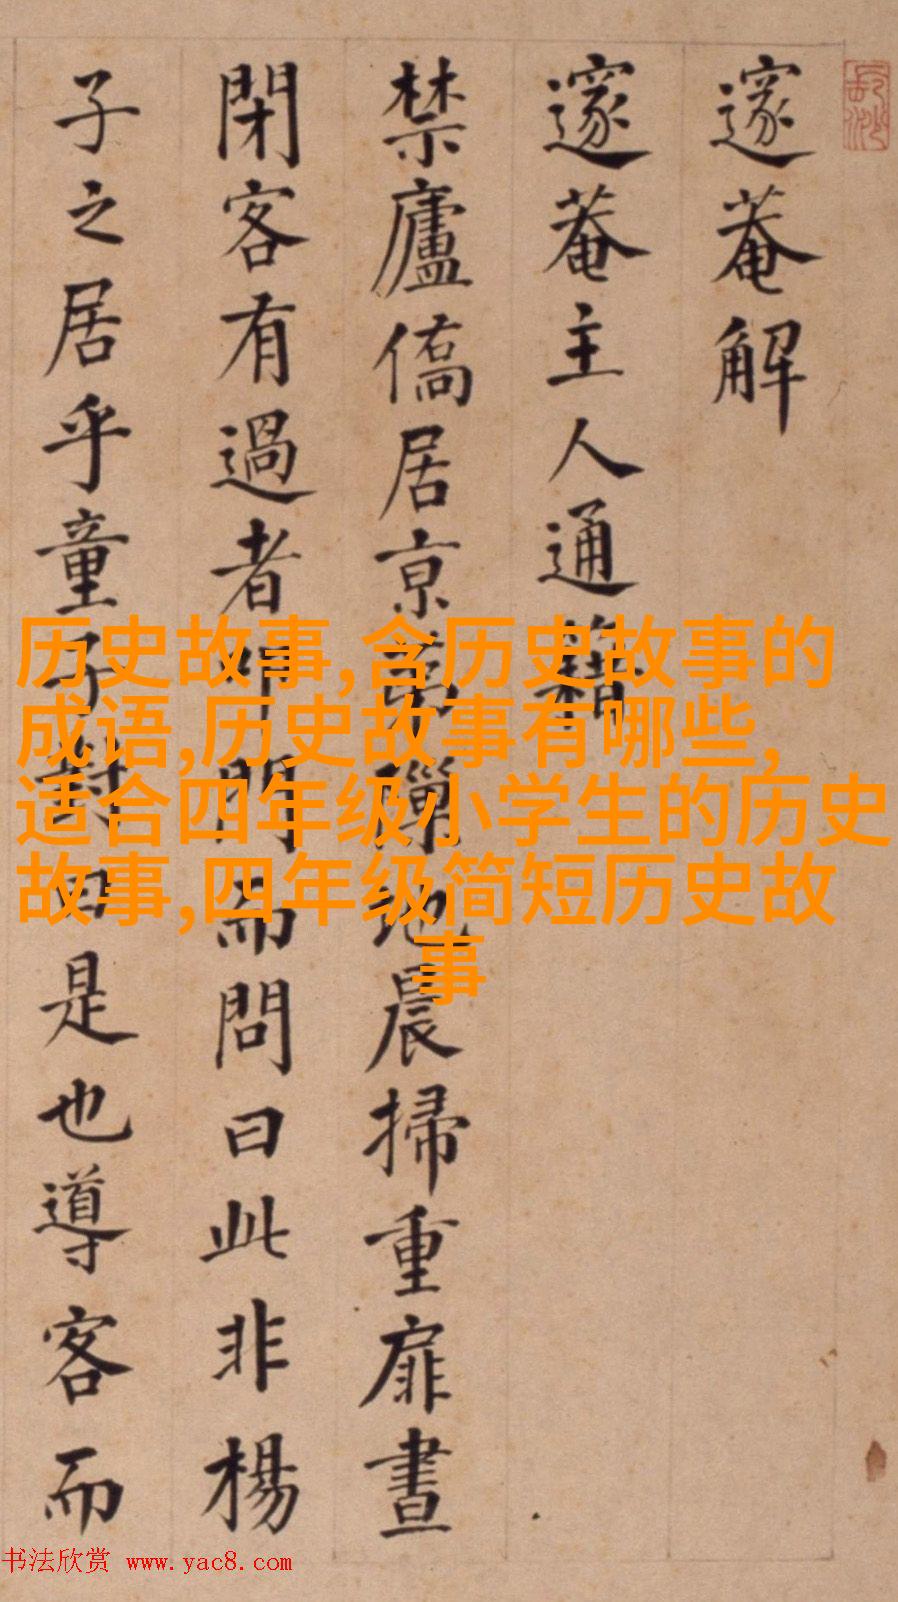 邃菴解
邃菴主人通籍
禁廬僑居京第地晨掃重扉晝
閉客有過者叩門而問曰此非楊
子之居乎童子對曰是也導客而
历史故事,含历史故事的
成语,历史故事有哪些,
适合四年级小学生的历史
故事,四年级简短历史故
事
书法欣赏 www.yac8.com